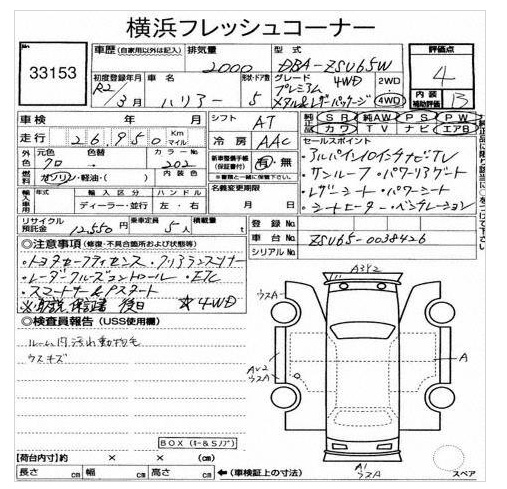 横浜フレッシュコーナー
33153
車歴 (自家用以外は記入) 排気量 2000 型式 DBA-ZSU65W
評価点 4
内装補助評価 B
初度登録年月 R2/3月
車名 ハリアー
形状・ドア数 5
グレード 4WD プレミアム メタル&レザーパッケージ
2WD 4WD
車検 年 月
シフト AT
純正 SR 純正AW PS PW
カワ TV ナビ エアB
走行 26,950 Km マイル
冷房 AAC
セールスポイント
・アルパイン10インチナビTV
・サンルーフ・パワーリアゲート
・レザーシート・パワーシート
・シートヒーター・ベンチレーション
外色 元色 クロ 色替 カラーNo 202
新車整備手帳(保証書付) 有・無
燃料 ガソリン・軽油・( ) 内装色
名義変更期限 月 日
輸入車用 年式 輸入区分 ディーラー・並行 ハンドル 左・右
リサイクル預託金 12,550円 乗車定員 5人 積載量 t
登録No
車台No ZSU65-0038426
シリアルNo
◎注意事項 (修復・不具合箇所および状態等)
・トヨタセーフティセンス・クリアランスソナー
・レーダークルーズコントロール・ETC
・スマートキー&Pスタート
※取説、保証書 後日 ☆4WD
◎検査員報告 (USS使用欄)
ルーム内汚れ動物毛
ウスキズ
BOX (キー&Sノブ)
【荷台内寸】約 × × (cm)
長さ cm 幅 cm 高さ cm ←(車検証上の寸法)
A3Y2
ウスA
AU2
ウスA
A
A1
ウスA
スペア